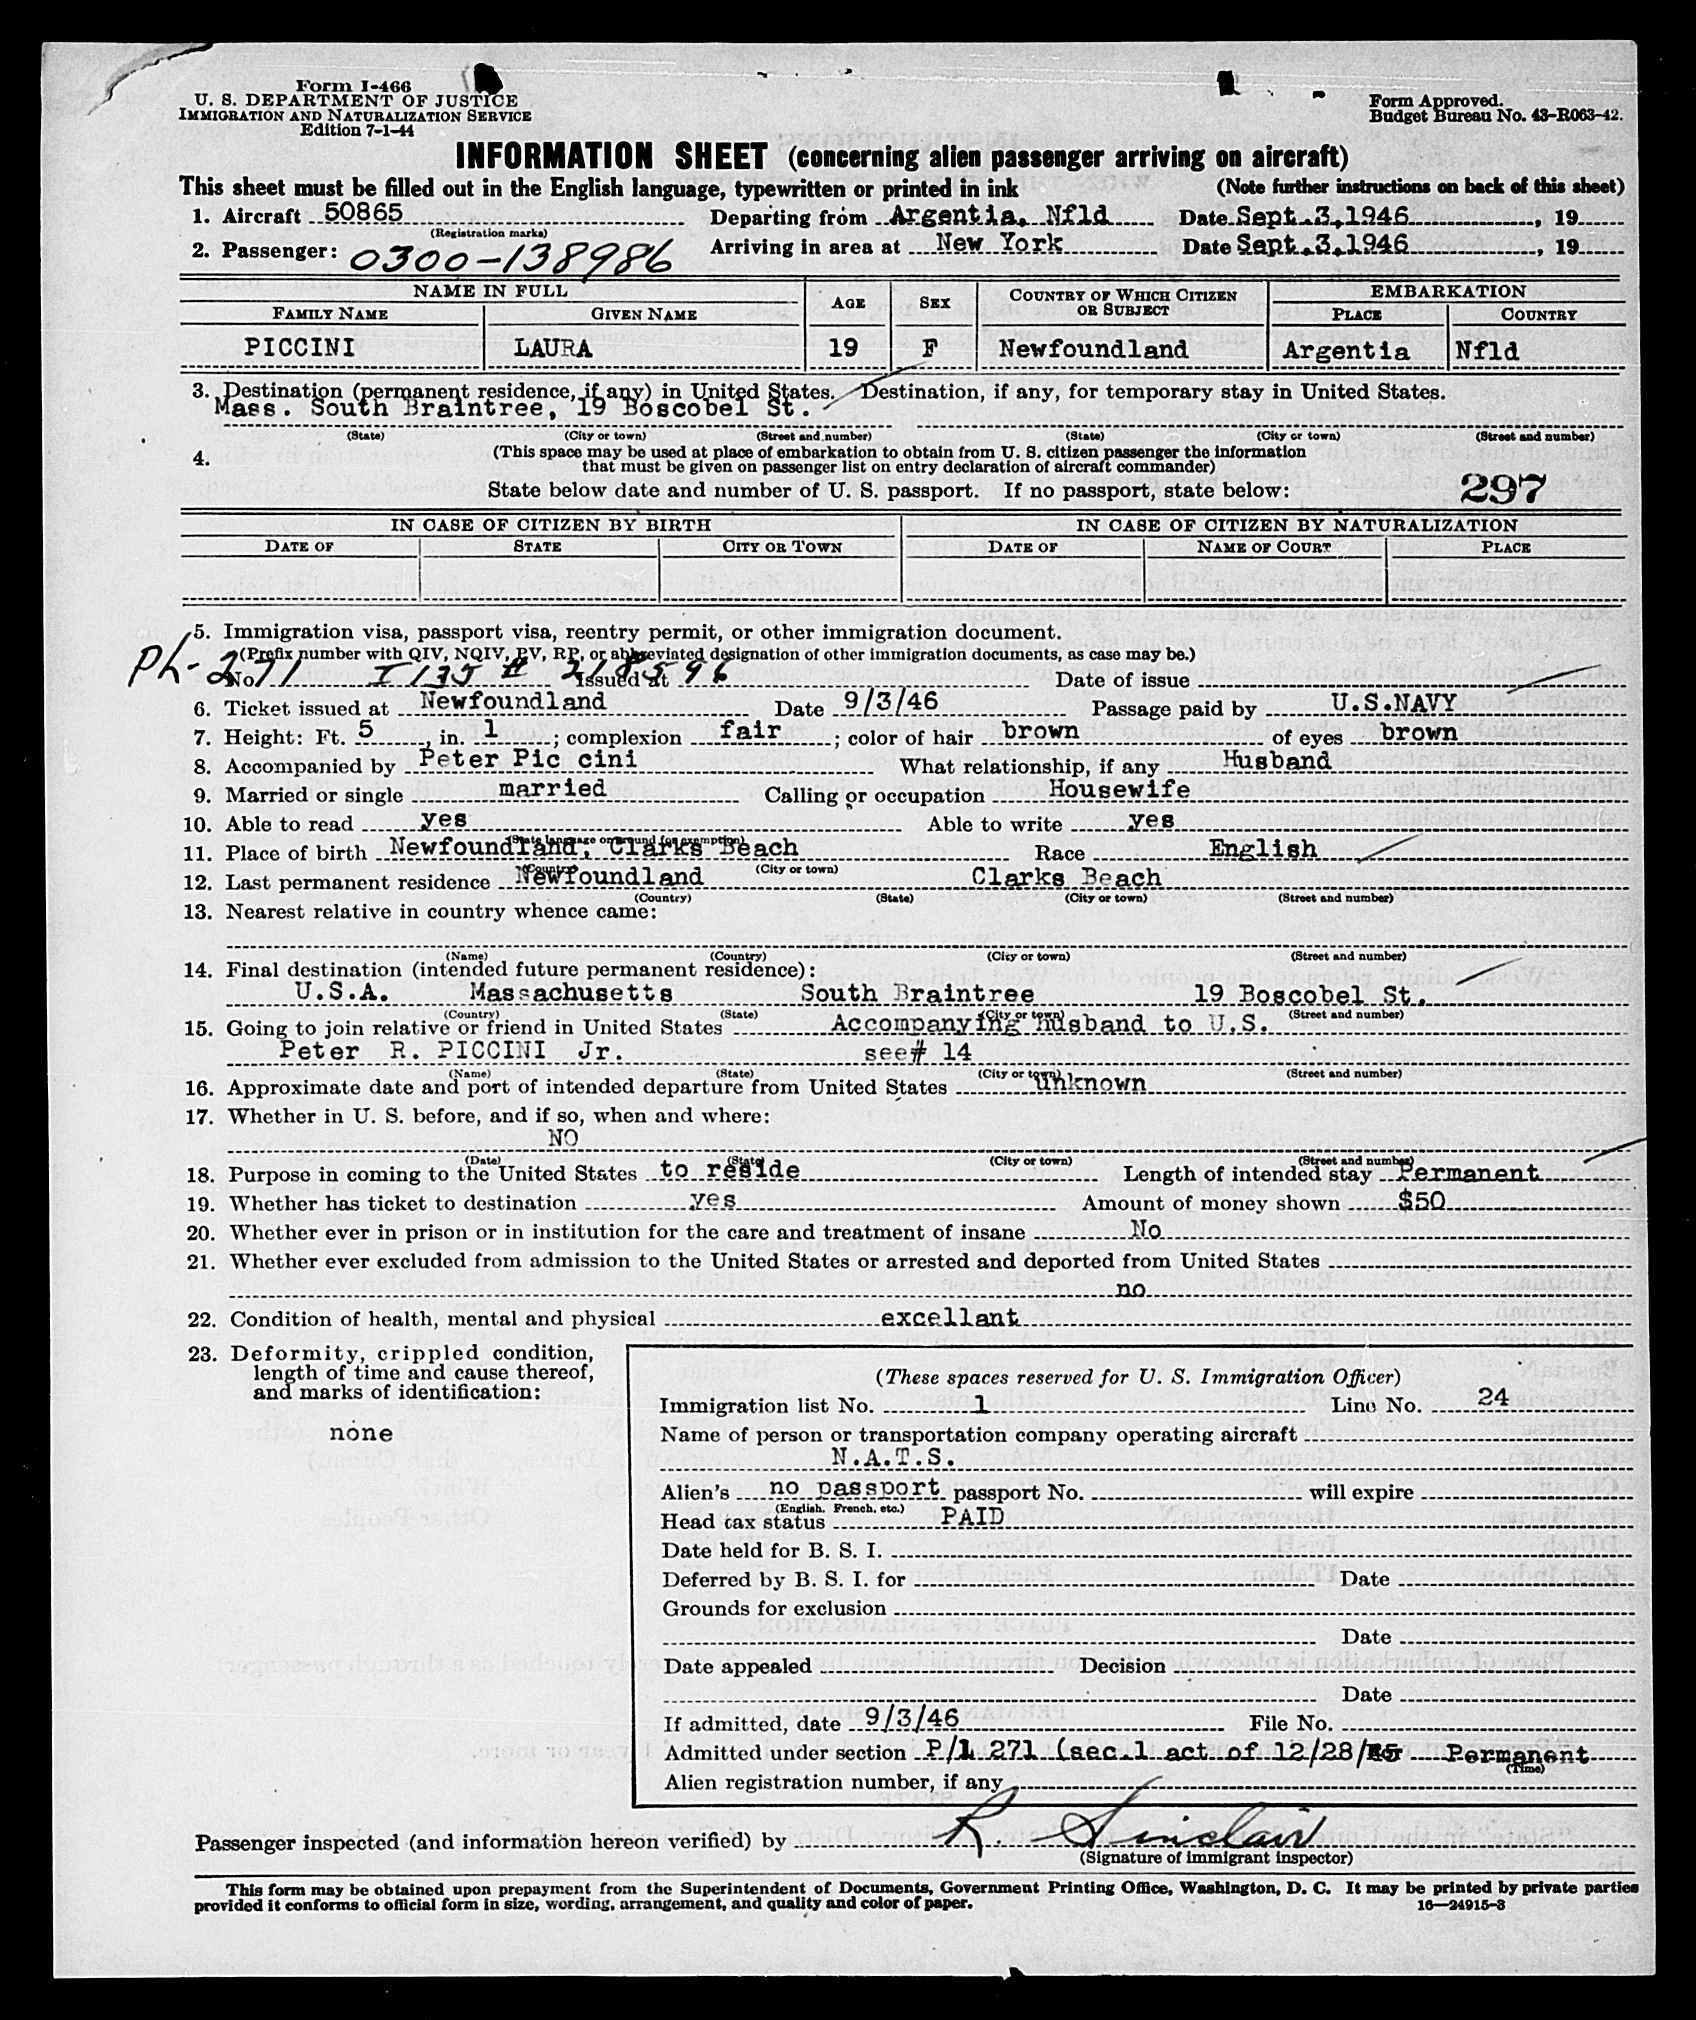 Form I-466
U. S. DEPARTMENT OF JUSTICE
IMMIGRATION AND NATURALIZATION SERVICE
Edition 7-1-44
Form Approved.
Budget Bureau No. 43-R063-42.
INFORMATION SHEET (concerning alien passenger arriving on aircraft)
This sheet must be filled out in the English language, typewritten or printed in ink (Note further instructions on back of this sheet)
1. Aircraft 50865 Departing from Argentia, Nfld Date Sept.3,1946, 19
(Registration marks)
2. Passenger: 0300-138986 Arriving in area at New York Date Sept.3,1946, 19
NAME IN FULL AGE SEX COUNTRY OF WHICH CITIZEN OR SUBJECT EMBARKATION
FAMILY NAME GIVEN NAME PLACE COUNTRY
PICCINI LAURA 19 F Newfoundland Argentia Nfld
3. Destination (permanent residence, if any) in United States. Destination, if any, for temporary stay in United States.
Mass. South Braintree, 19 Boscobel St.
(State) (City or town) (Street and number) (State) (City or town) (Street and number)
4. (This space may be used at place of embarkation to obtain from U. S. citizen passenger the information
that must be given on passenger list on entry declaration of aircraft commander)
State below date and number of U. S. passport. If no passport, state below: 297
IN CASE OF CITIZEN BY BIRTH IN CASE OF CITIZEN BY NATURALIZATION
DATE OF STATE CITY OR TOWN DATE OF NAME OF COURT PLACE
5. Immigration visa, passport visa, reentry permit, or other immigration document.
(Prefix number with QIV, NQIV, PV, RP, or abbreviated designation of other immigration documents, as case may be.)
PL-271 I 135 # 218596
No. Issued at Date of issue
6. Ticket issued at Newfoundland Date 9/3/46 Passage paid by U.S.NAVY
7. Height: Ft. 5, in. 1; complexion fair; color of hair brown of eyes brown
8. Accompanied by Peter Pic cini What relationship, if any Husband
9. Married or single married Calling or occupation Housewife
10. Able to read yes Able to write yes
(State language or ground for exemption)
11. Place of birth Newfoundland, Clarks Beach Race English
(Country) (City or town)
12. Last permanent residence Newfoundland Clarks Beach
(Country) (State) (City or town) (Street and number)
13. Nearest relative in country whence came:
(Name) (Country) (City or town) (Street and number)
14. Final destination (intended future permanent residence):
U.S.A. Massachusetts South Braintree 19 Boscobel St.
(Country) (State) (City or town) (Street and number)
15. Going to join relative or friend in United States Accompanying husband to U.S.
Peter R. PICCINI Jr. see# 14
(Name) (State) (City or town) (Street and number)
16. Approximate date and port of intended departure from United States unknown
17. Whether in U. S. before, and if so, when and where:
NO
(Date) (State) (City or town) (Street and number)
18. Purpose in coming to the United States to reside Length of intended stay Permanent
19. Whether has ticket to destination yes Amount of money shown $50
20. Whether ever in prison or in institution for the care and treatment of insane No
21. Whether ever excluded from admission to the United States or arrested and deported from United States
no
22. Condition of health, mental and physical excellant
23. Deformity, crippled condition,
length of time and cause thereof,
and marks of identification:
none
(These spaces reserved for U. S. Immigration Officer)
Immigration list No. 1 Line No. 24
Name of person or transportation company operating aircraft
N.A.T.S.
Alien's no passport passport No. will expire
(English, French, etc.)
Head tax status PAID
Date held for B. S. I.
Deferred by B. S. I. for Date
Grounds for exclusion
Date
Date appealed Decision
Date
If admitted, date 9/3/46 File No.
Admitted under section P/L 271 (sec.1 act of 12/28/45 for Permanent
(Time)
Alien registration number, if any
Passenger inspected (and information hereon verified) by R. Sinclair
(Signature of immigrant inspector)
This form may be obtained upon prepayment from the Superintendent of Documents, Government Printing Office, Washington, D. C. It may be printed by private parties
provided it conforms to official form in size, wording, arrangement, and quality and color of paper. 16—24915-3